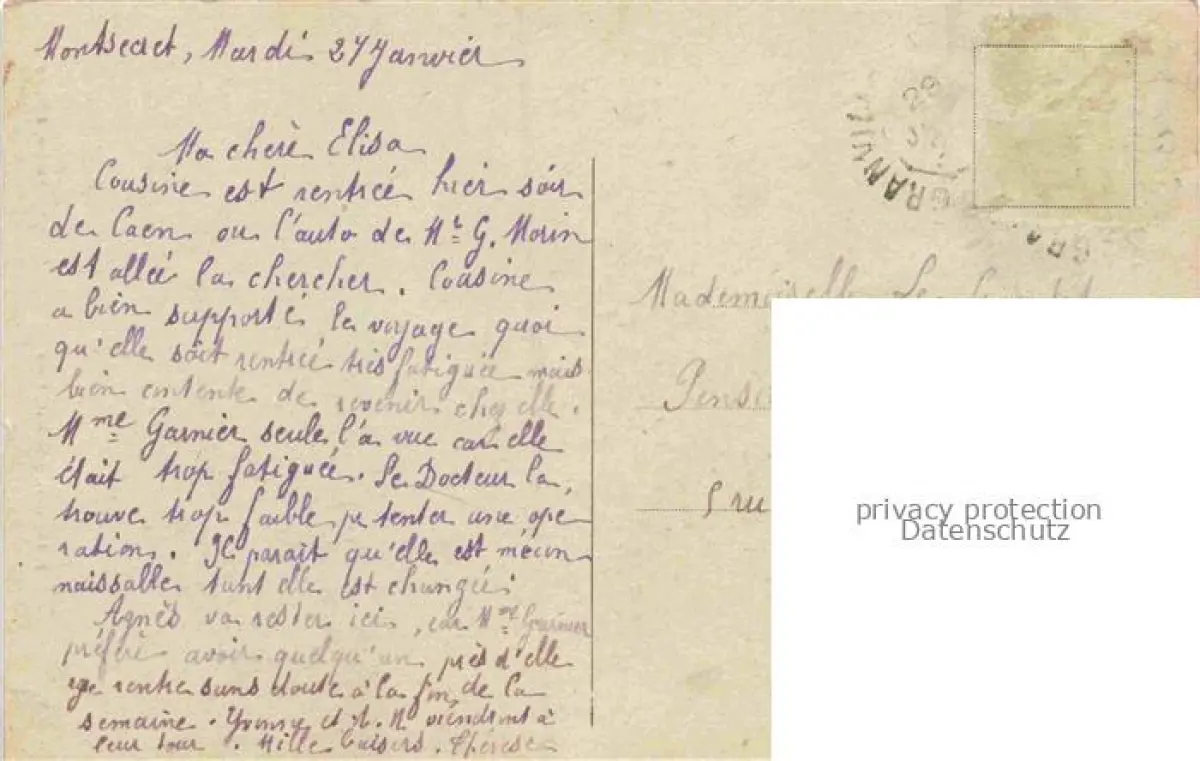 Montsecret, Mardi 27 Janvier
Ma chère Elisa
Cousine est rentrée hier soir
de Caen ou l'auto de Mr G. Morin
est allée la chercher. Cousine
a bien supporté le voyage quoi
qu'elle soit rentrée très fatiguée mais
bien contente de revenir chez elle.
Mme Garnier seule l'a vue car elle
était trop fatiguée. Le Docteur la
trouve trop faible pr tenter une opé
ration. Il parait qu'elle est mécon
naissable tant elle est changée.
Agnès va rester ici, car Mme Garnier
préfère avoir quelqu'un près d'elle
je rentre sans doute à la fin de la
semaine. Yvonne et viendront à
leur tour. Mille baisers. Thérèse
GRANVIL
29
GRA
Mademoiselle Le
Pensi
5 ru
privacy protection
Datenschutz